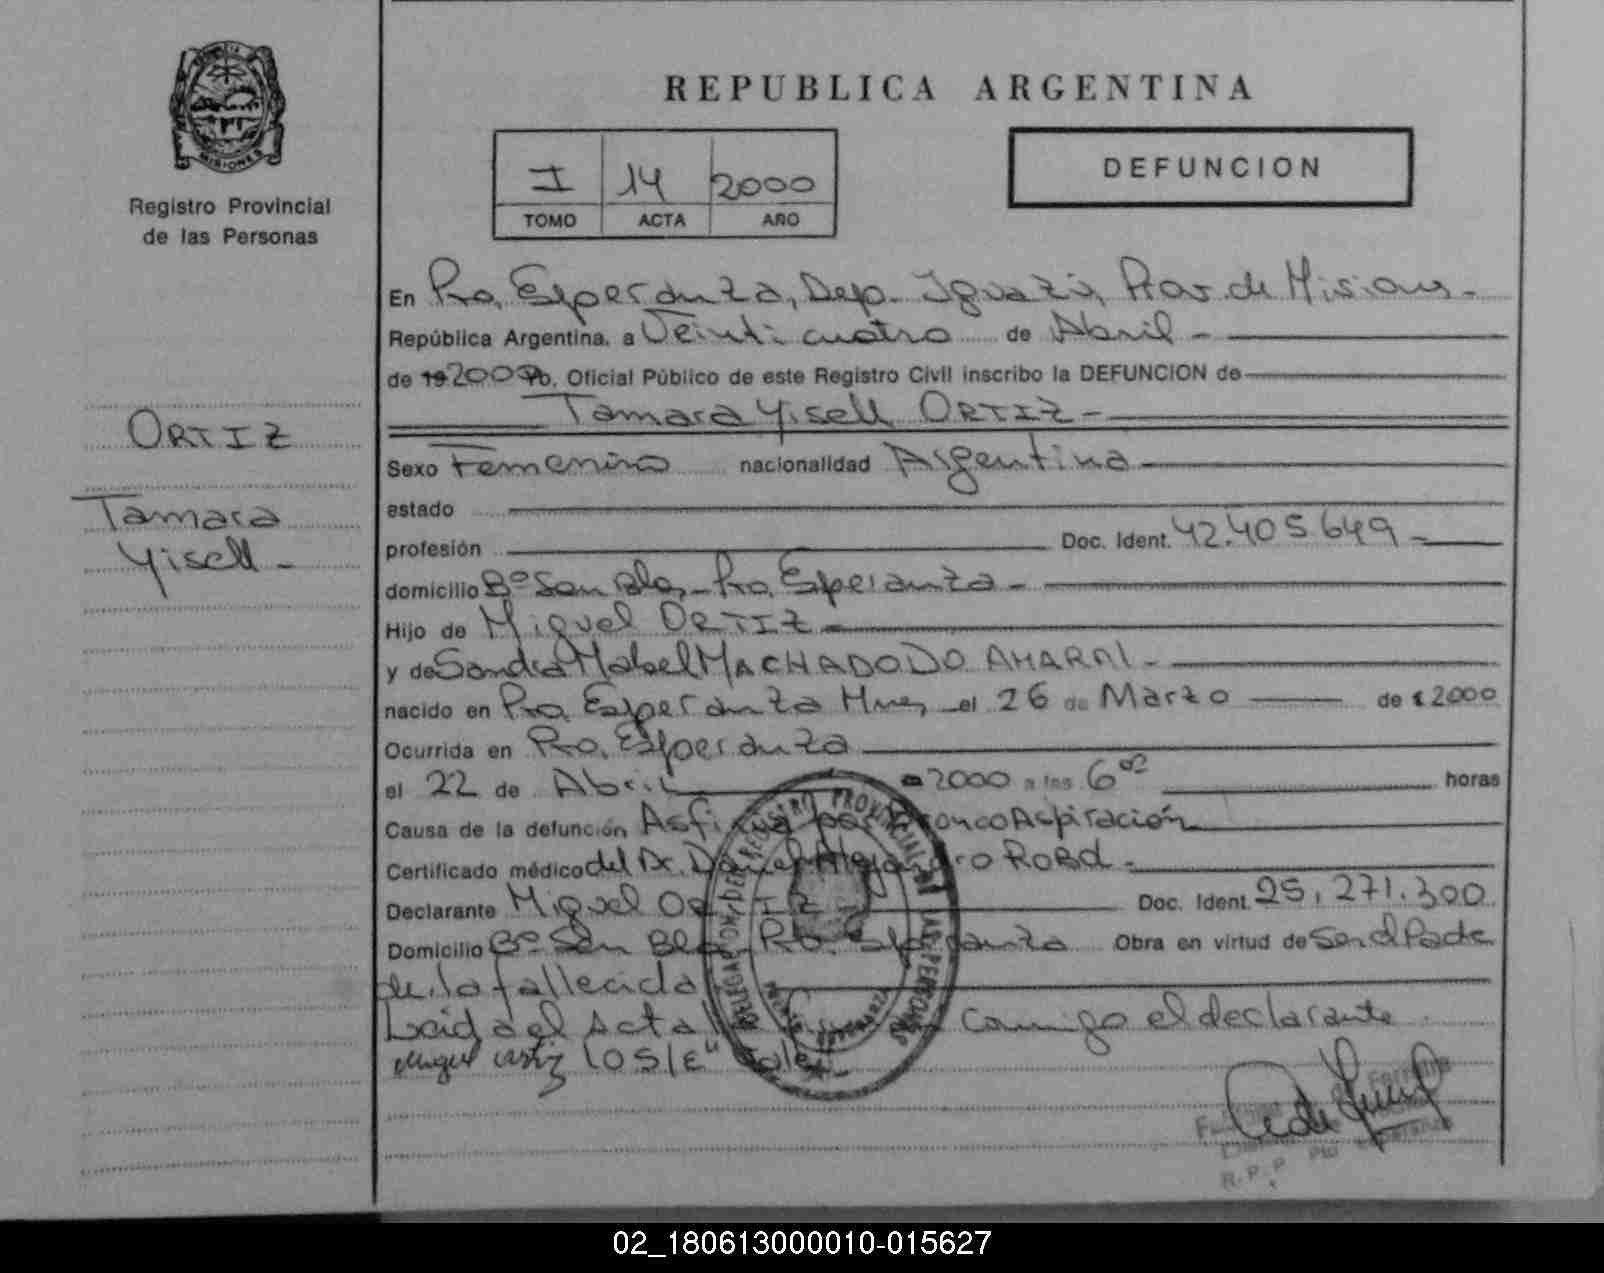 MISIONES
Registro Provincial
de las Personas
ORTIZ
Tamara
Yisell -
REPUBLICA ARGENTINA
I 14 2000
TOMO ACTA AÑO
DEFUNCION
En Pto. Esperanza, Dep. Iguazú, Prov. de Misiones -
República Argentina, a Veinticuatro de Abril -
de 19 2000 Yo, Oficial Público de este Registro Civil inscribo la DEFUNCION de
Tamara Yisell ORTIZ -
Sexo Femenino nacionalidad Argentina
estado
profesión Doc. Ident. 42.405.649 -
domicilio Bº San Blas - Pto. Esperanza -
Hijo de Miguel ORTIZ -
y de Sandra Mabel MACHADO DO AMARAL -
nacido en Pto. Esperanza Mnes, el 26 de Marzo de 2000
Ocurrida en Pto. Esperanza
el 22 de Abril 2000 a las 6 horas
Causa de la defunción Asfixia por Bronco Aspiración
Certificado médico del Dr. Daniel Alejandro ROBD -
Declarante Miguel ORTIZ Doc. Ident. 25.271.300
Domicilio Bº San Blas Pto. Esperanza Obra en virtud de Ser el Padre
de la fallecida
Leida el Acta conmigo el declarante
Miguel Ortiz 10 S/E" Vale -
DELEGACION DEL REGISTRO PROVINCIAL DE LAS PERSONAS
R.P.P. Pto Esperanza
02_180613000010-015627